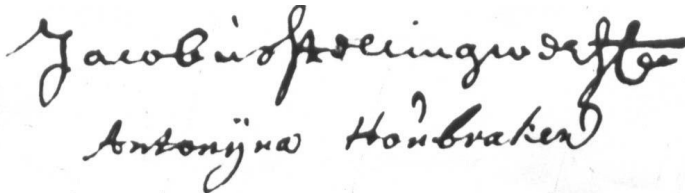 Jacobùs Stellingwerff
Antonÿna Hoùbraken